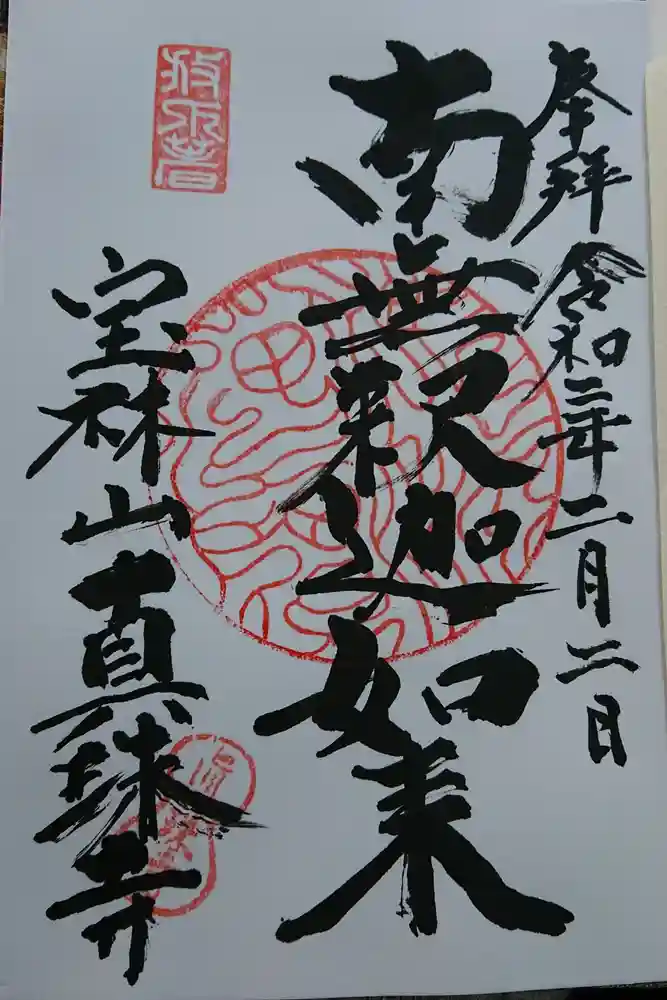 奉拝 令和二年二月二日
南無釈迦如来
宝林山真珠寺